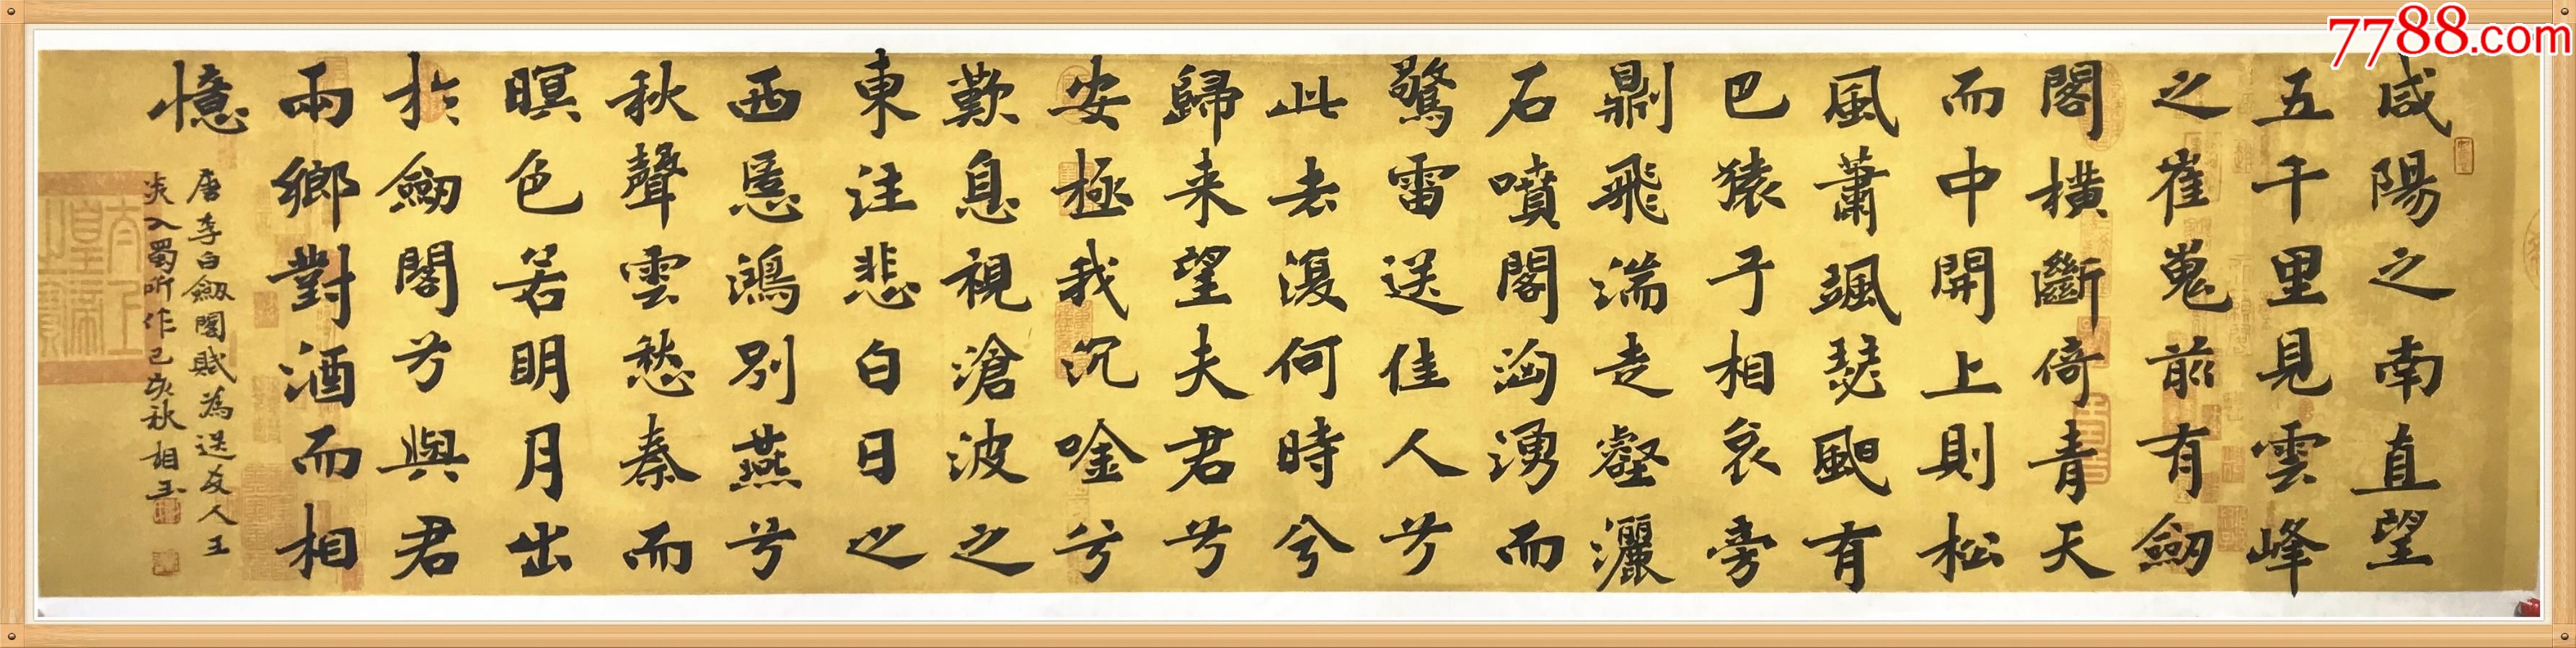 咸陽之南直望
五千里見雲峰
之崔嵬前有劒
閣橫斷倚青天
而中開上則松
風蕭颯瑟䬍有
巴猿兮相哀旁
則飛湍走壑灑
石噴閣洶湧而
驚雷送佳人兮
此去復何時兮
歸来望夫君兮
安極我沉唫兮
歎息視滄波之
東注悲白日之
西匿鴻別燕兮
秋聲雲愁秦而
暝色若明月出
於劒閣兮與君
兩鄉對酒而相
憶
唐李白劒閣賦為送友人王
炎入蜀所作己亥秋相玉
7788.com